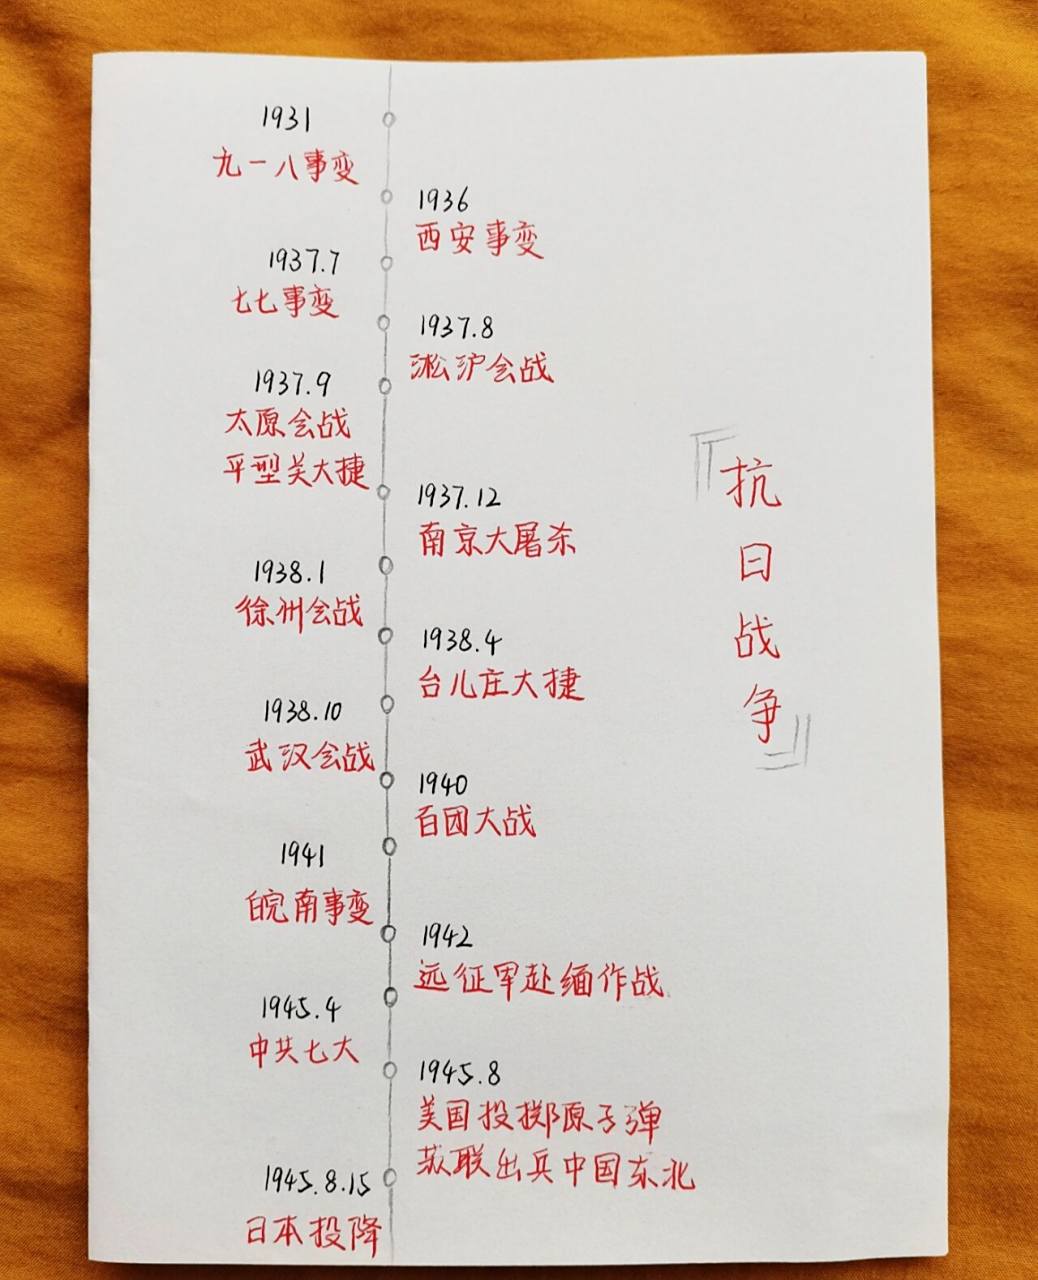 1931
九一八事变
1936
西安事变
1937.7
七七事变
1937.8
淞沪会战
1937.9
太原会战
平型关大捷
1937.12
南京大屠杀
1938.1
徐州会战
1938.4
台儿庄大捷
1938.10
武汉会战
1940
百团大战
1941
皖南事变
1942
远征军赴缅作战
1945.4
中共七大
1945.8
美国投掷原子弹
苏联出兵中国东北
1945.8.15
日本投降
『抗日战争』